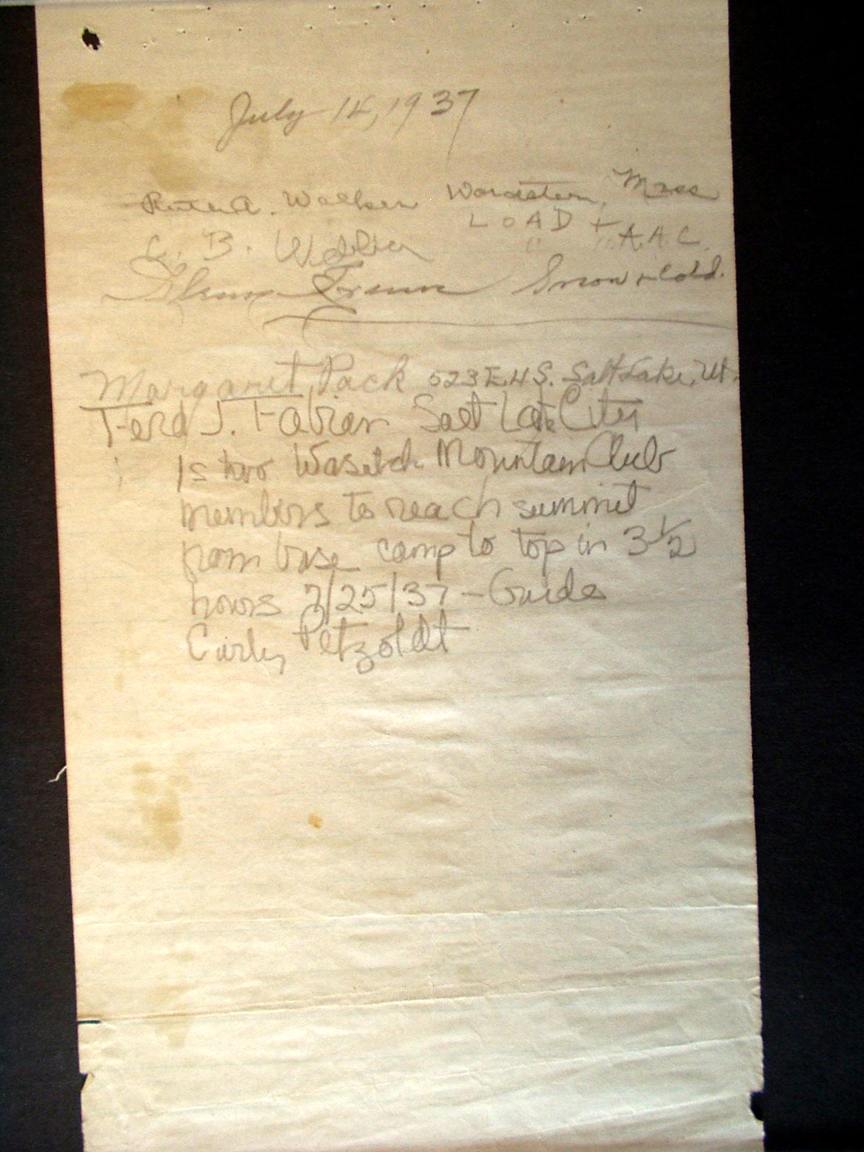 July 14, 1937
Ruth A. Walker Worcester, Mass
L O A D + A.A.C.
C. B. " "
Glenn Exum Snow & Cold.
Margaret Pack 523 E. 4 S. Salt Lake, Ut.
Ferd J. Fabian Salt Lake City
1st two Wasatch Mountain Club
members to reach summit
from base camp to top in 3 1/2
hours 7/25/37 - Guide
Curly Petzoldt